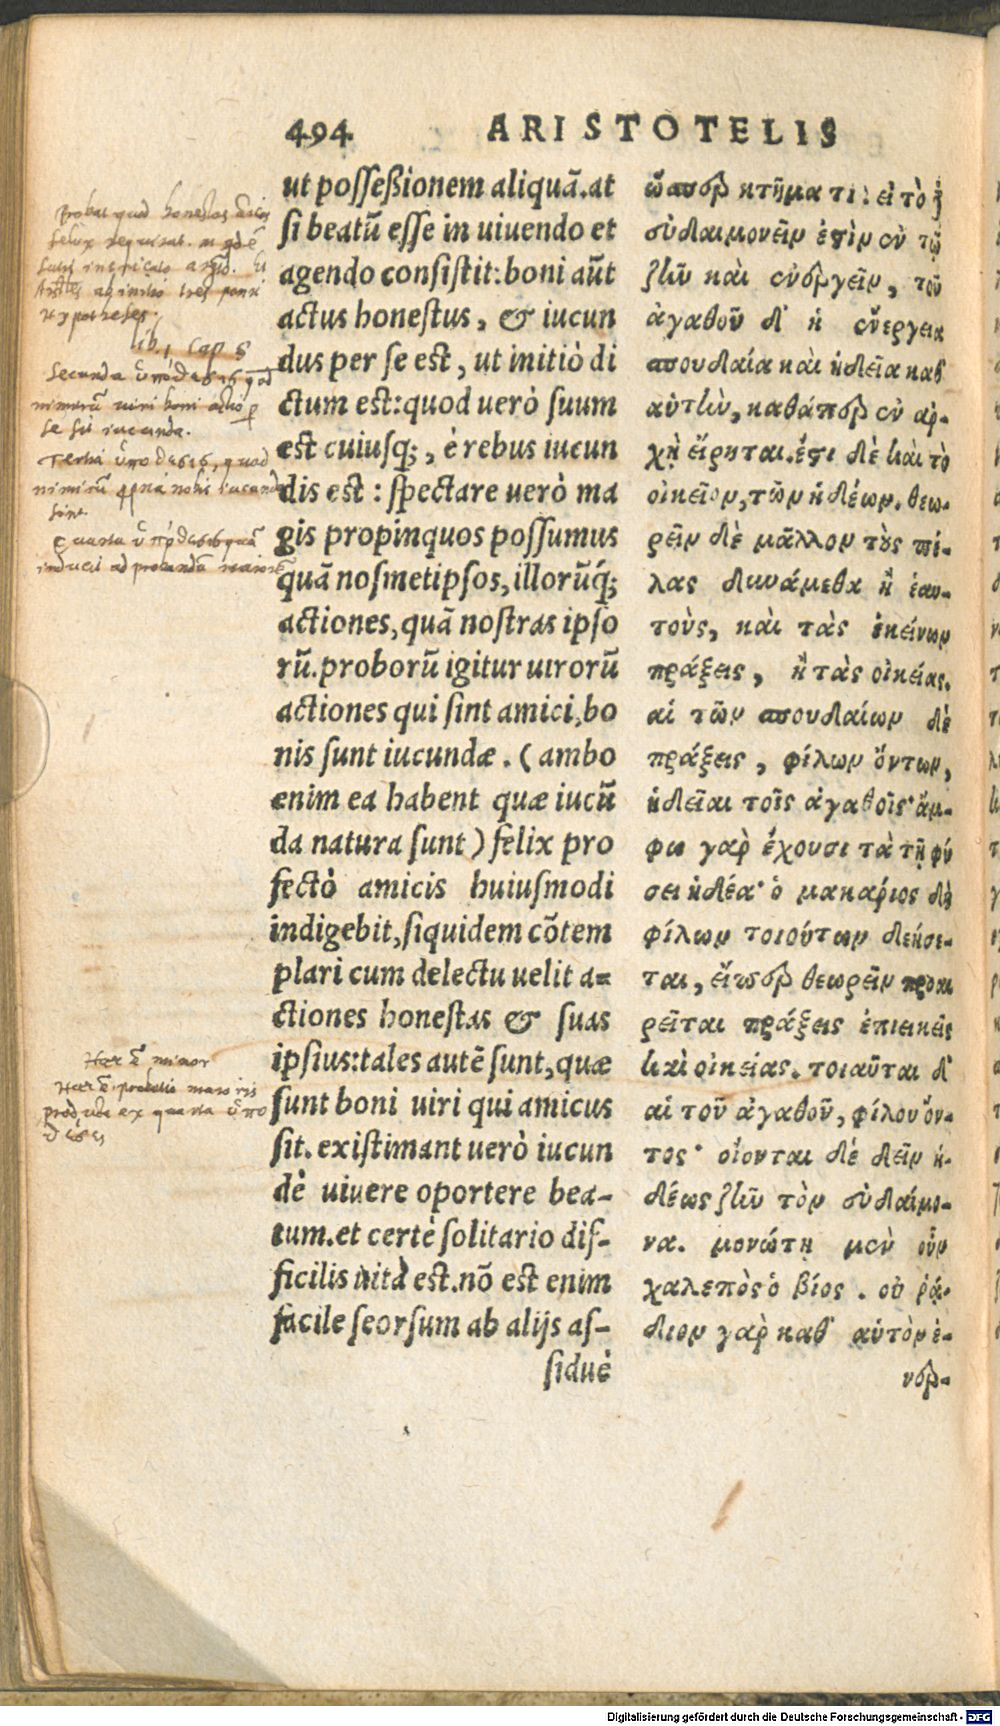 494 ARISTOTELIS
ut posseßionem aliquā.at
si beatū esse in uiuendo et
agendo consistit: boni aūt
actus honestus, & iucun
dus per se est, ut initiò di
ctum est: quod uerò suum
est cuiusq;, è rebus iucun
dis est: spectare uerò ma
gis propinquos possumus
quā nosmetipsos, illorūq́;
actiones, quā nostras ipso
rū. proborū igitur uirorū
actiones qui sint amici, bo
nis sunt iucundæ. (ambo
enim ea habent quæ iucū
da natura sunt) felix pro
fectò amicis huiusmodi
indigebit, siquidem cōtem
plari cum delectu uelit a=
ctiones honestas & suas
ipsius: tales autē sunt, quæ
sunt boni uiri qui amicus
sit. existimant uerò iucun
dè uiuere oportere bea-
tum. et certè solitario dif-
ficilis uita est. nō est enim
facile seorsum ab alijs as-
siduè
ὥσπερ κτῆμα τι: εἰ τὸ
εὐδαιμονεῖν ἐστὶν ἐν τῷ
ζῆν καὶ ἐνεργεῖν, τοῦ
ἀγαθοῦ δ' ἡ ἐνέργεια
σπουδαία καὶ ἡδεῖα καθ'
αὑτὴν, καθάπερ ἐν ἀρ-
χῇ εἴρηται. ἔστι δὲ καὶ τὸ
οἰκεῖον, τῶν ἡδέων. θεω-
ρεῖν δὲ μᾶλλον τοὺς πέ-
λας δυνάμεθα ἢ ἑαυ-
τοὺς, καὶ τὰς ἐκείνων
πράξεις, ἢ τὰς οἰκείας.
αἱ τῶν σπουδαίων δὲ
πράξεις, φίλων ὄντων,
ἡδεῖαι τοῖς ἀγαθοῖς· ἄμ-
φω γὰρ ἔχουσι τὰ τῇ φύ
σει ἡδέα· ὁ μακάριος δὴ
φίλων τοιούτων δεήσε-
ται, εἴπερ θεωρεῖν προαι
ρεῖται πράξεις ἐπιεικεῖς
καὶ οἰκείας. τοιαῦται δ'
αἱ τοῦ ἀγαθοῦ, φίλου ὄν-
τος· οἴονται δέ δεῖν ἡ-
δέως ζῆν τὸν εὐδαίμο-
να. μονώτῃ μὲν οὖν
χαλεπὸς ὁ βίος. οὐ ῥᾴ-
διον γὰρ καθ' αὑτὸν ἐ-
νερ-
Probat quod honestos amicos
felix requirat.
lib. 1 cap 8
Secunda ὑπόθεσις quod
nimirū uiri boni actio per
se sit iucunda.
Tertia ὑπόθεσις, quod
nimirū propria nobis iucunda
sint
Quarta ὑπόθεσις quā
inducit ad probandā maiorē
Haec ē minor
Haec ē probatio maioris
producta ex quarta ὑπο
θέσει
Digitalisierung gefördert durch die Deutsche Forschungsgemeinschaft - DFG